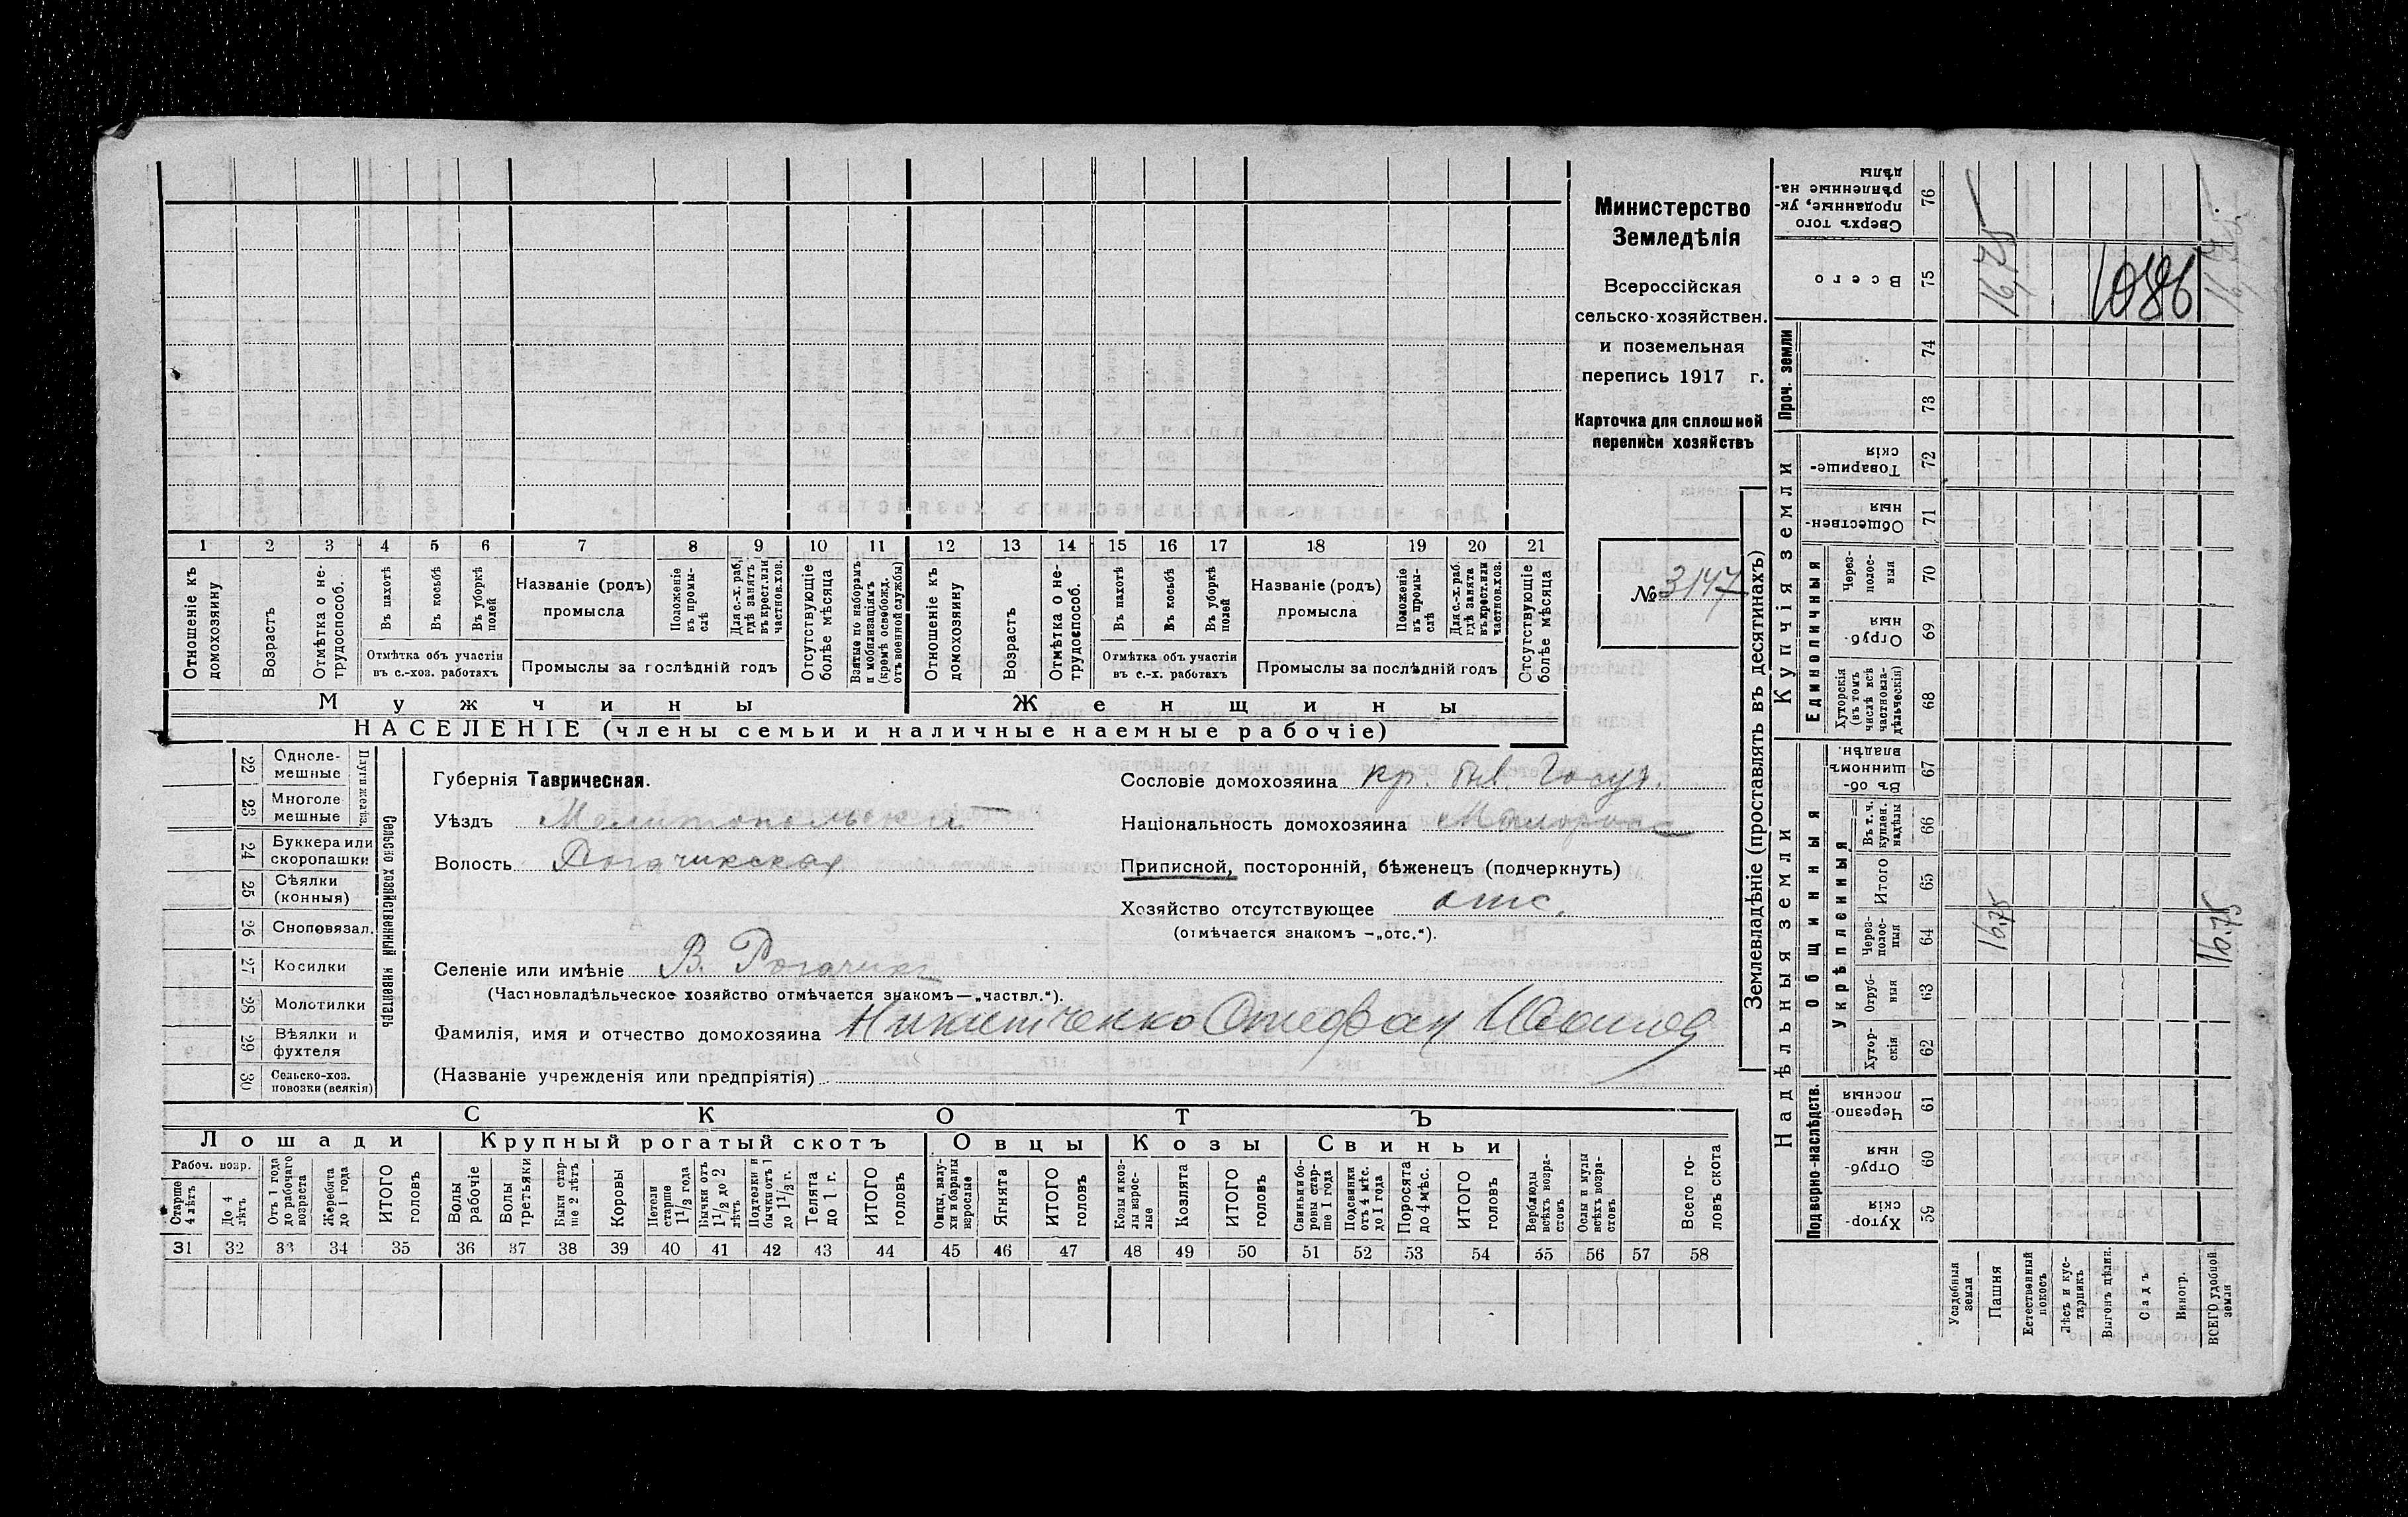 Министерство
Земледѣлія
Всероссійская
сельско-хозяйствен.
и поземельная
перепись 1917 г.
Карточка для сплошной
переписи хозяйствъ
№ 3147
1 2 3 4 5 6 7 8 9 10 11 12 13 14 15 16 17 18 19 20 21
Отношеніе къ домохозяину
Возрастъ
Отмѣтка о не-трудоспособ.
Въ пахотѣ
Въ косьбѣ
Въ уборкѣ полей
Отмѣтка объ участіи
въ с.-хоз. работахъ
Названіе (родъ)
промысла
Положеніе въ промы-слѣ
Для с.-х. раб. гдѣ занятъ въ крест. или частнов. хоз.
Промыслы за послѣдній годъ
Отсутствующіе болѣе мѣсяца
Взятые по наборамъ и мобилизаціямъ (кромѣ освобожд. отъ военной службы)
Отношеніе къ домохозяину
Возрастъ
Отмѣтка о не-трудоспособ.
Въ пахотѣ
Въ косьбѣ
Въ уборкѣ полей
Отмѣтка объ участіи
въ с.-х. работахъ
Названіе (родъ)
промысла
Положеніе въ промы-слѣ
Для с.-х. раб. гдѣ занята въ крест. или частнов. хоз.
Промыслы за послѣдній годъ
Отсутствующіе болѣе мѣсяца
Мужчины
Женщины
НАСЕЛЕНІЕ (члены семьи и наличные наемные рабочіе)
22 Одноле-мешные
23 Многоле мешные
Плуги желѣз.
24 Буккера или скоропашки
25 Сѣялки (конныя)
26 Сноповязал.
27 Косилки
28 Молотилки
29 Вѣялки и фухтеля
30 Сельско-хоз. повозки (всякія)
Сельско хозяйственный инвентарь
Губернія Таврическая.
Уѣздъ Мелитопольскій
Волость Рогачикская
Селеніе или имѣніе В. Рогачикъ
(Частновладѣльческое хозяйство отмѣчается знакомъ—„частвл.“).
Фамилія, имя и отчество домохозяина Никитченко Стефан Иванов
(Названіе учрежденія или предпріятія)
Сословіе домохозяина кр. быв. Госуд.
Національность домохозяина Малорос
Приписной, посторонній, бѣженецъ (подчеркнуть)
Хозяйство отсутствующее отс.
(отмѣчается знакомъ —„отс.“).
СКОТЪ
Лошади
Крупный рогатый скотъ
Овцы
Козы
Свиньи
Рабоч. возр.
Старше 4 лѣтъ
До 4 лѣтъ
Отъ 1 года до рабочаго возраста
Жеребята до 1 года
ИТОГО головъ
Волы рабочіе
Волы третьяки
Быки стар-ше 2 лѣтъ
Коровы
Нетели старше 1½ года
Бычки отъ 1½ до 2 лѣтъ
Подтелки и бычки отъ 1 до 1½ г.
Телята до 1 г.
ИТОГО головъ
Овцы, валу-хи и бараны взрослые
Ягнята
ИТОГО головъ
Козы и коз-лы взрос-лые
Козлята
ИТОГО головъ
Свиньи и бо-ровы стар-ше 1 года
Подсвинки отъ 4 мѣс. до 1 года
Поросята до 4 мѣс.
ИТОГО головъ
Верблюды всѣхъ возра-стовъ
Ослы и мулы всѣхъ возра-стовъ
Всего го-ловъ скота
31 32 33 34 35 36 37 38 39 40 41 42 43 44 45 46 47 48 49 50 51 52 53 54 55 56 57 58
Землевладѣніе (проставлять въ десятинахъ)
Надѣльныя земли
Купчія земли
Проч. земли
Подворно-наслѣдств.
Общинныя
Укрѣпленныя
Единоличныя
Сверхъ того проданные, ук-рѣпленные на-дѣлы 76
Всего 75
74
73
Товарище-скія 72
Обществен-ныя 71
Через-полос-ныя 70
Отруб-ныя 69
Хуторскія (въ томъ числѣ всѣ частновла-дѣльческія) 68
Въ об-щинномъ владѣн. 67
Въ т. ч. куплен. надѣлы 66
Итого 65
Через-полос-ныя 64
Отруб-ныя 63
Хутор-скія 62
Черезпо-лосныя 61
Отруб-ныя 60
Хутор-скія 59
Усадебныя земли
Пашня
Естественный покосъ
Лѣсъ и кус-тарникъ
Выгонъ цѣлин.
Садъ
Виногр.
ВСЕГО удобной земли
16,75
1086
16,75
16.75
16.75